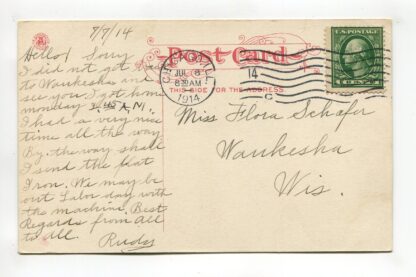 7/7/14
Hello! Sorry
I did not get
to Waukesha and
see you. I got home
monday A.M.
I had a very nice
time all the way
By. the way shall
I send the
I row. We may be
out Labor day with
the machine. Best
Regards from All
to All.
Rudy
Post Card
CHICAGO, ILL.
JUL 8
8 AM
1914
14
C
THIS SIDE FOR THE ADDRESS.
U.S. POSTAGE
1 CENT 1
Miss Flora Schafer
Waukesha
Wis.